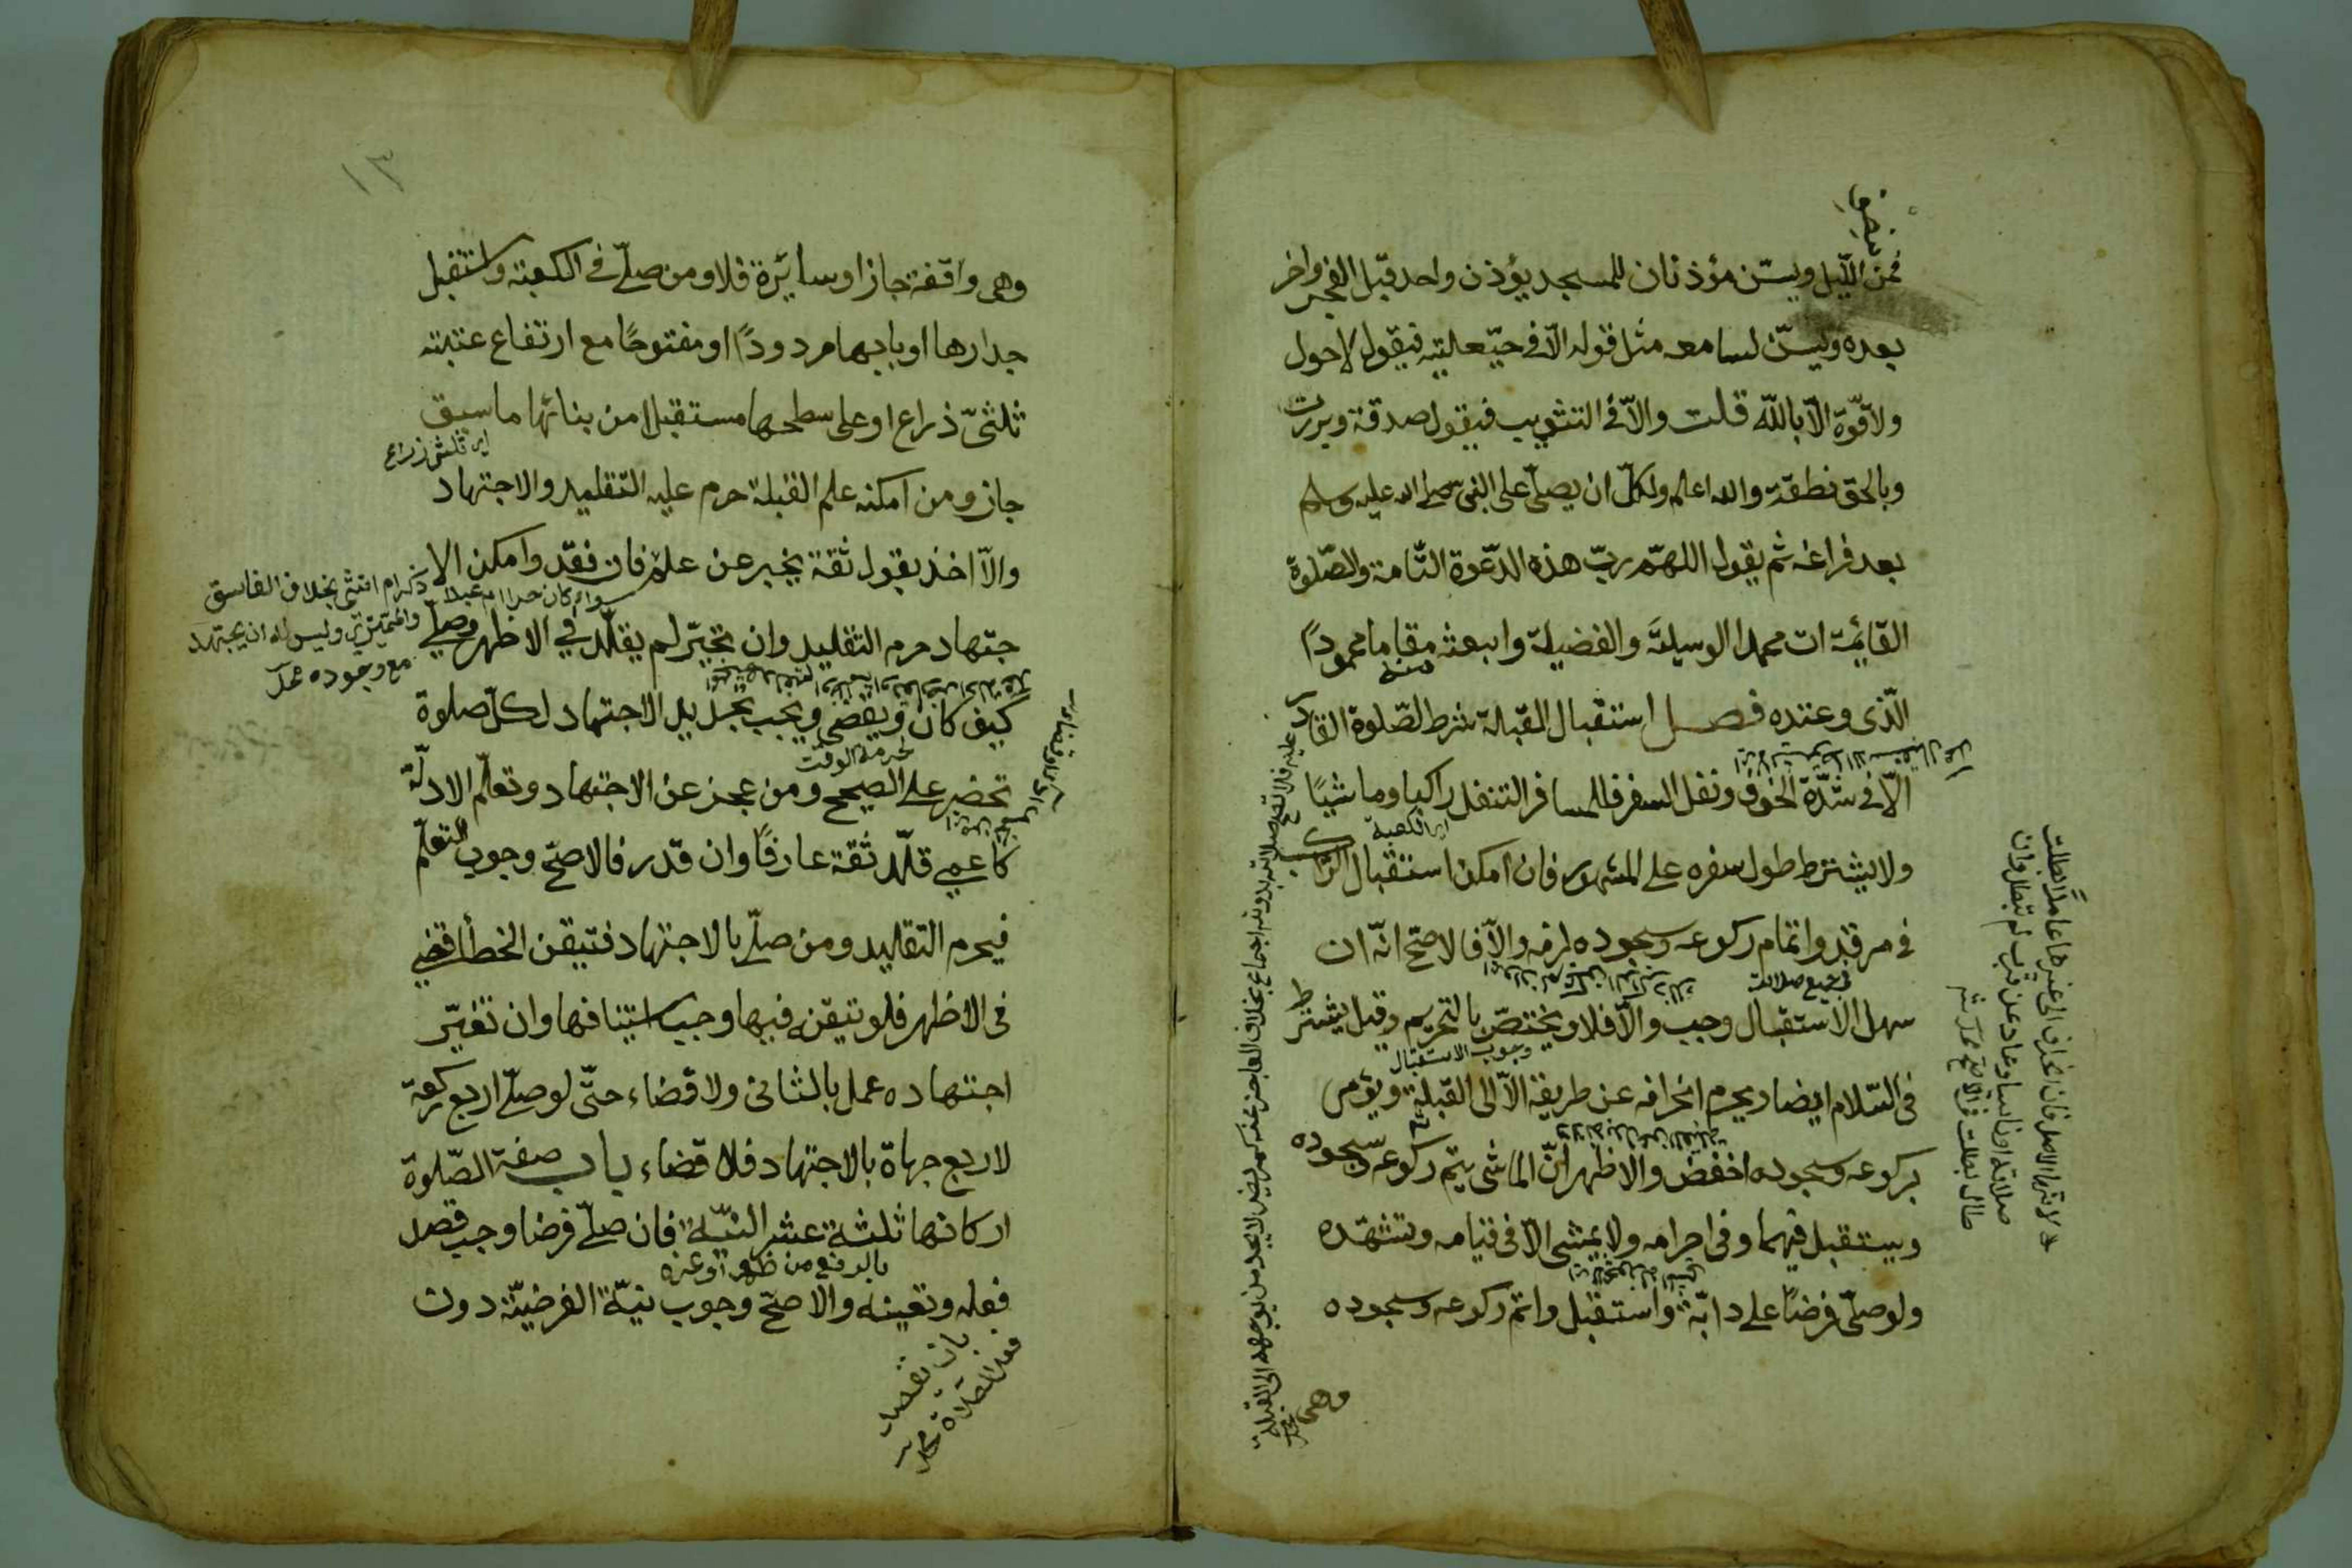 نصف
فمن الليل ويسن مؤذنان للمسجد يؤذن واحد قبل الفجر واخر
بعده ويسن لسامعه مثل قوله الّا في حيّعلتيه فيقول لاحول
ولاقوّة الّا بالله قلت والّا في التثويب فيقول صدقة وبررت
وبالحق نطقة والله اعلم ولكلّ ان يصلّي على النبي صلى الله عليه وسلم
بعد فراغه ثم يقول اللهمّ ربّ هذه الدّعوة التّامة والصّلوة
القائمة ات محمدا الوسيلة والفضيلة وابعثه مقاما محمودًا
الّذى وعدته فصل استقبال القبلة شرط لصّلوة القادر
الّا فى شدّة الخوف ونفل السفر فللمسافر التنفل راكبا وماشيًا
اي الكعبة
ولا يشترط طول سفره على المشهور فان امكن استقبال الراكب
في مرقد واتمام ركوعه وسجوده لزمه والّا فالاصحّ انّه ان
في جميع صلاته
سهل الاستقبال وجب والّا فلا ويختصّ بالتحريم وقيل يشترط
وجوب الاستقبال
فى السّلام ايضا ويحرم انحرافه عن طريقه الّا الى القبلة ويؤمى
بركوعه وسجوده اخفض والاظهر انّ الماشى يتم ركوعه وسجوده
ويستقبل فيهما وفى احرامه ولا يمشى الّا فى قيامه وتشهّده
ولو صلّى فرضًا على دابّة واستقبل واتم ركوعه وسجوده
وهى
عليه فلا تصح صلاته بدونه اجماع بخلاف العاجز عنه كمريض لا يجد من يوجهه الى القبلة
١٣
وهى واقفة جاز او سائرة فلا ومن صلّى فى الكعبة واستقبل
جدارها او بابها مردودًا او مفتوحًا مع ارتفاع عتبته
ثلثىّ ذراع او على سطحها مستقبلا من بنائها ما سبق
اي ثلثي ذراع
جاز ومن امكنه علم القبلة حرم عليه التقليد والاجتهاد
والّا اخذ بقول ثقة يخبر عن علم فان فقد وامكن الا
سواء كان حرا ام عبدا ذكر ام انثى بخلاف الفاسق
والمميز وليس له ان يجتهد
مع وجوده
جتهاد حرم التقليد وان تحيّر لم يقلّد في الاظهر وصلّى
كيف كان ويقضى ويجب تجديد الاجتهاد لكلّ صلوة
لحرمة الوقت
تحضر على الصحيح ومن عجز عن الاجتهاد وتعلّم الادلّة
كاعمى قلّد ثقة عارفًا وان قدر فالاصحّ وجوب التعلّم
فيحرم التقليد ومن صلّى بالاجتهاد فتيقن الخطأ قضى
فى الاظهر فلو تيقنه فيها وجب استينافها وان تغيّر
اجتهاده عمل بالثانى ولا قضاء حتّى لو صلّى اربع ركعة
لاربع جهاة بالاجتهاد فلا قضاء باب صفة الصّلوة
اركانها ثلثة عشر النيّة فان صلّى فرضا وجب قصد
بالرفع من ظهر او غيره
فعله وتعينه والاصحّ وجوب نيّة الفرضيّة دون
بان يقصد
فعل الصلاة